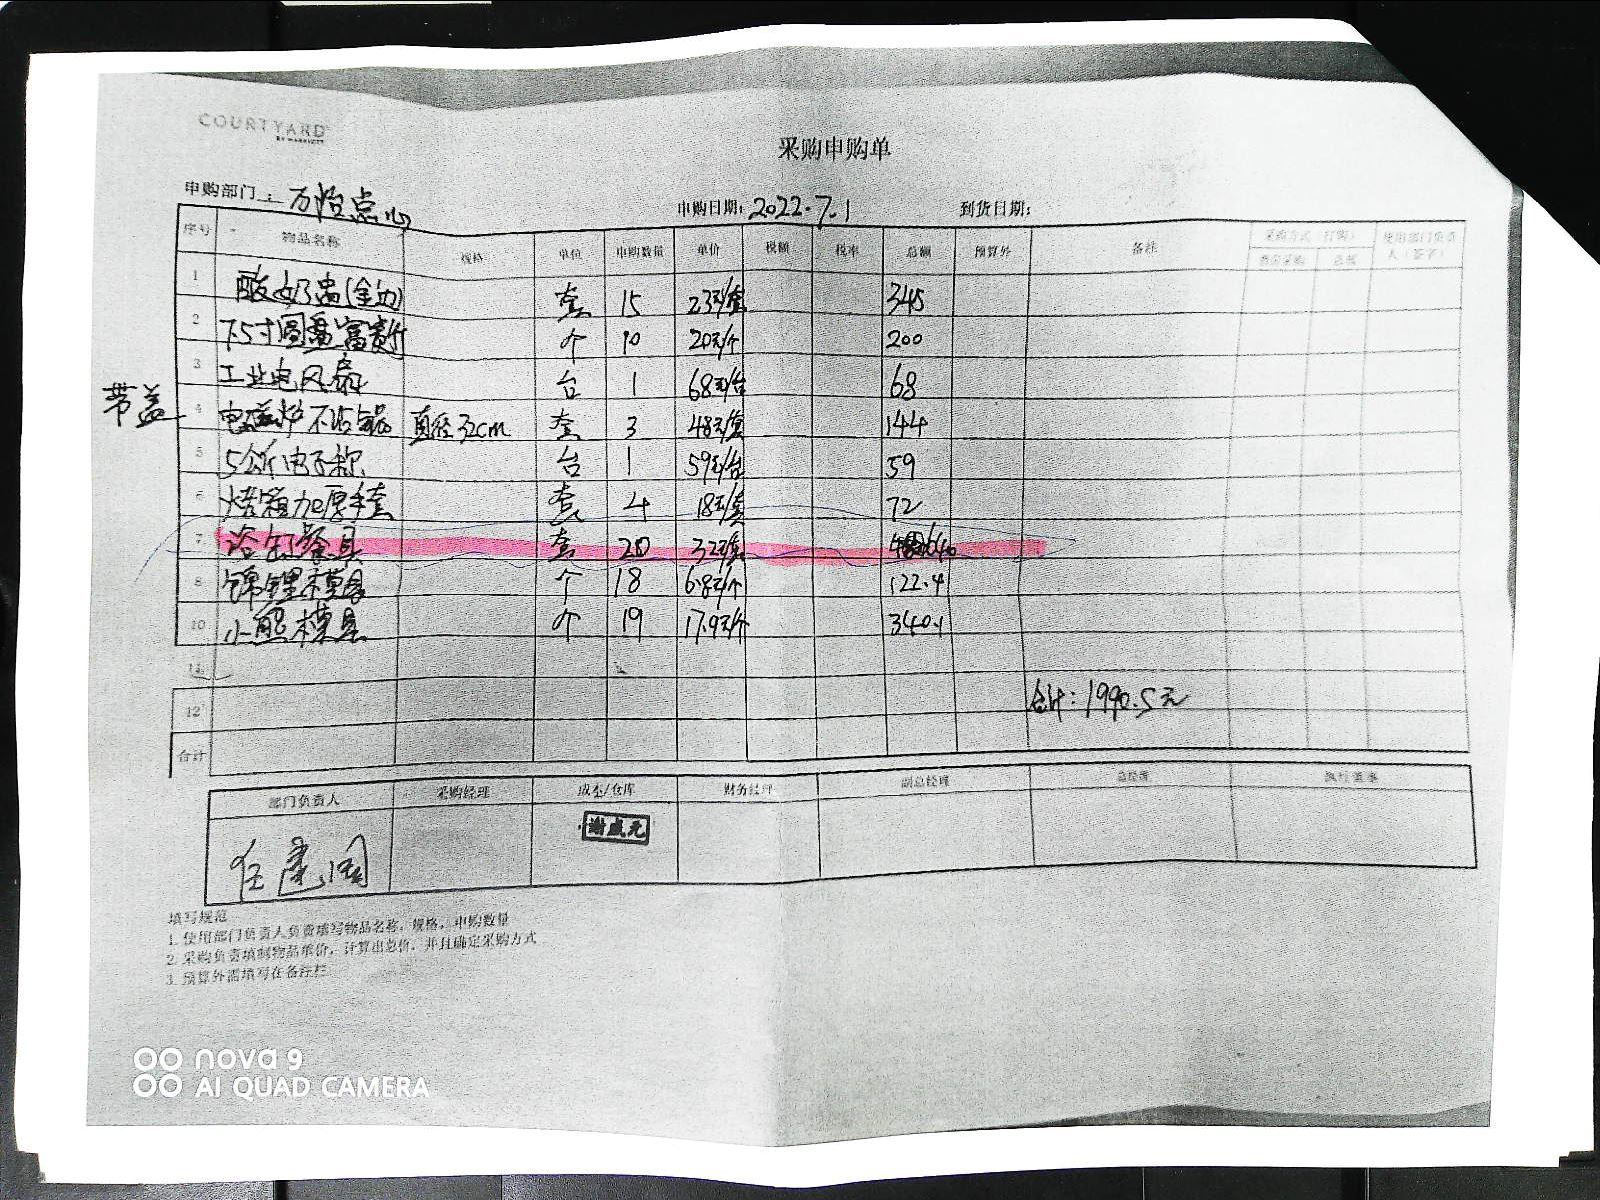 COURTYARD
BY MARRIOTT
采购申购单
申购部门: 万怡点心 申购日期: 2022.7.1 到货日期:
序号 物品名称 规格 单位 申购数量 单价 税额 税率 总额 预算外 备注 采购方式(打购) 使用部门负责人(签名)
1 酸奶盅(金边) 套 15 23元/套 345
2 7.5寸圆盘 个 10 20元/个 200
3 工业电风扇 台 1 68元/台 68
带盖 4 电磁炉不沾锅 直径32cm 套 3 48元/套 144
5 5公斤电子称 台 1 59元/台 59
6 烤箱加厚手套 套 4 18元/套 72
7 浴缸餐具 套 20 32元/套 640
8 锦鲤模具 个 18 6.8元/个 122.4
10 小熊模具 个 19 17.9元/个 340.1
11
12 合计: 1990.5元
合计
部门负责人 采购经理 成本/仓库 财务经理 副总经理 总经理 执行董事
任建国 谢成元
填写规范
1. 使用部门负责人负责填写物品名称, 规格, 申购数量
2. 采购负责填制物品单价, 计算出总价, 并且确定采购方式
3. 预算外需填写在备注栏
nova 9
AI QUAD CAMERA